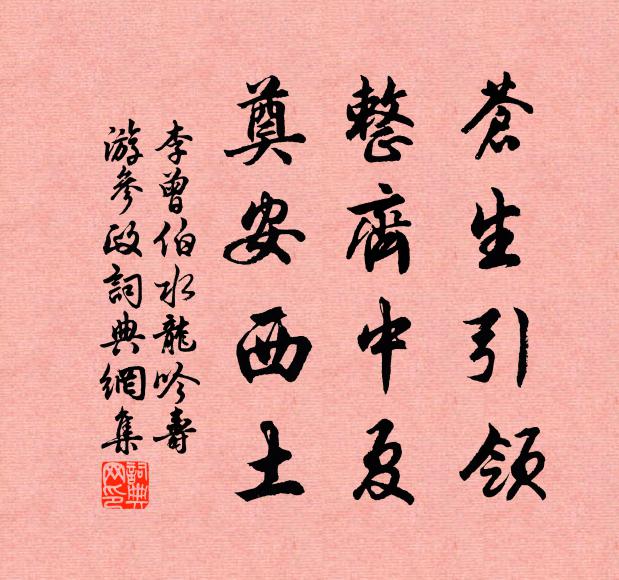 蒼生引領
整齊中夏
奠安西土
李曾伯水龍吟壽
游參政詞典網集
詞典網印